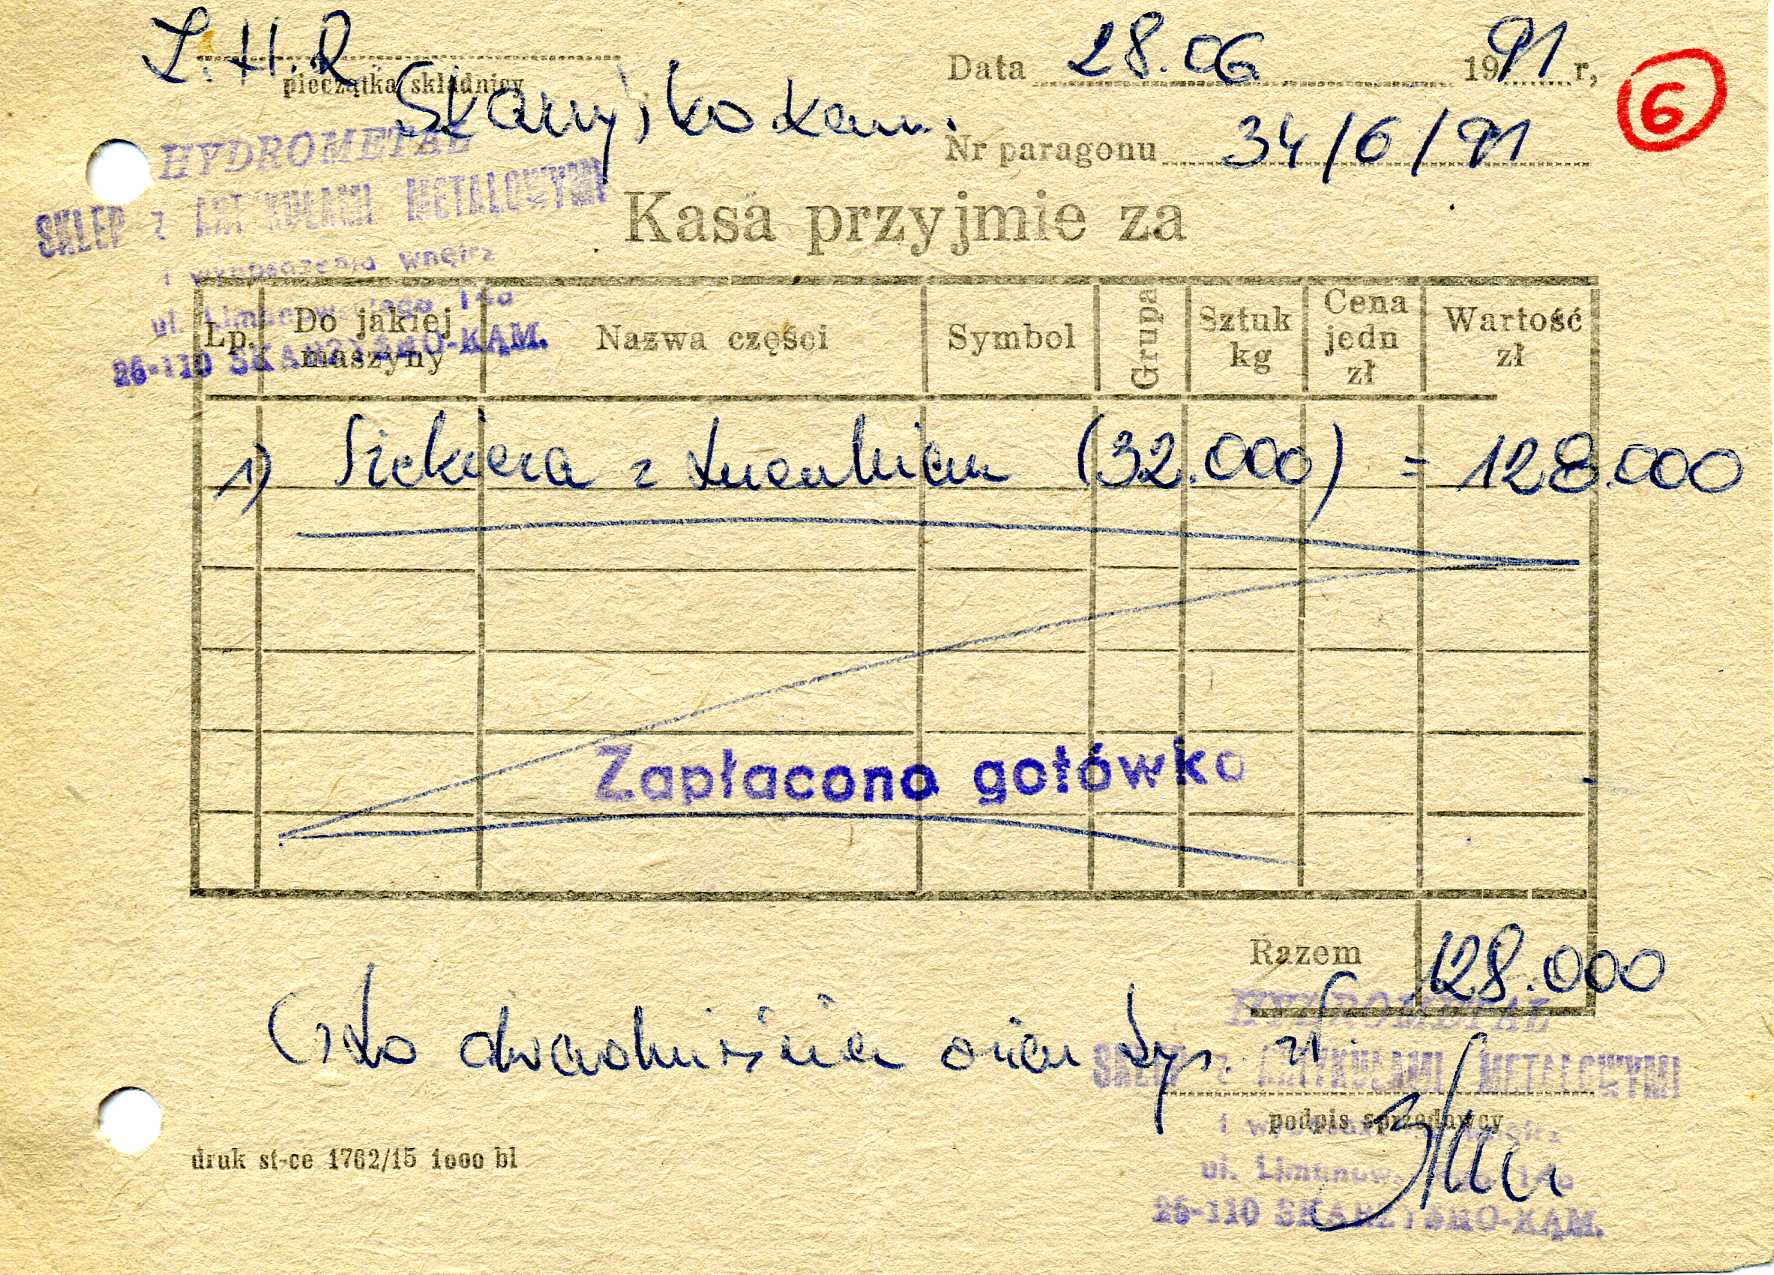 Z.H.R
pieczątka składnicy
Skarżysko Kam.
Data 28.06 1991 r,
6
Nr paragonu 34/6/91
HYDROMETAL
SKLEP z ARTYKUŁAMI METALOWYMI
i wyposażenia wnętrz
ul. Limanowskiego
26-110 SKARŻYSKO-KAM.
Kasa przyjmie za
Lp. Do jakiej maszyny Nazwa części Symbol Grupa Sztuk kg Cena jedn zł Wartość zł
1) Siekiera z (32.000) = 128.000
Zapłacono gotówko
Razem 128.000
(Sto dwadzieścia osiem tys. zł.
HYDROMETAL
SKLEP z ARTYKUŁAMI METALOWYMI
podpis sprzedawcy
i wnętrz
ul.
26-110 SKARŻYSKO-KAM.
druk st-ce 1762/15 1000 bl